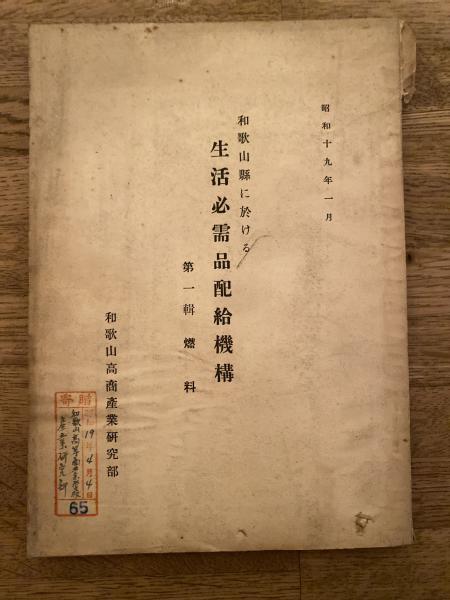 昭和十九年一月
和歌山縣に於ける
生活必需品配給機構
第一輯 燃料
和歌山高商産業研究部
寄贈
昭和19年4月4日
和歌山高等商業学校
産業研究部
65